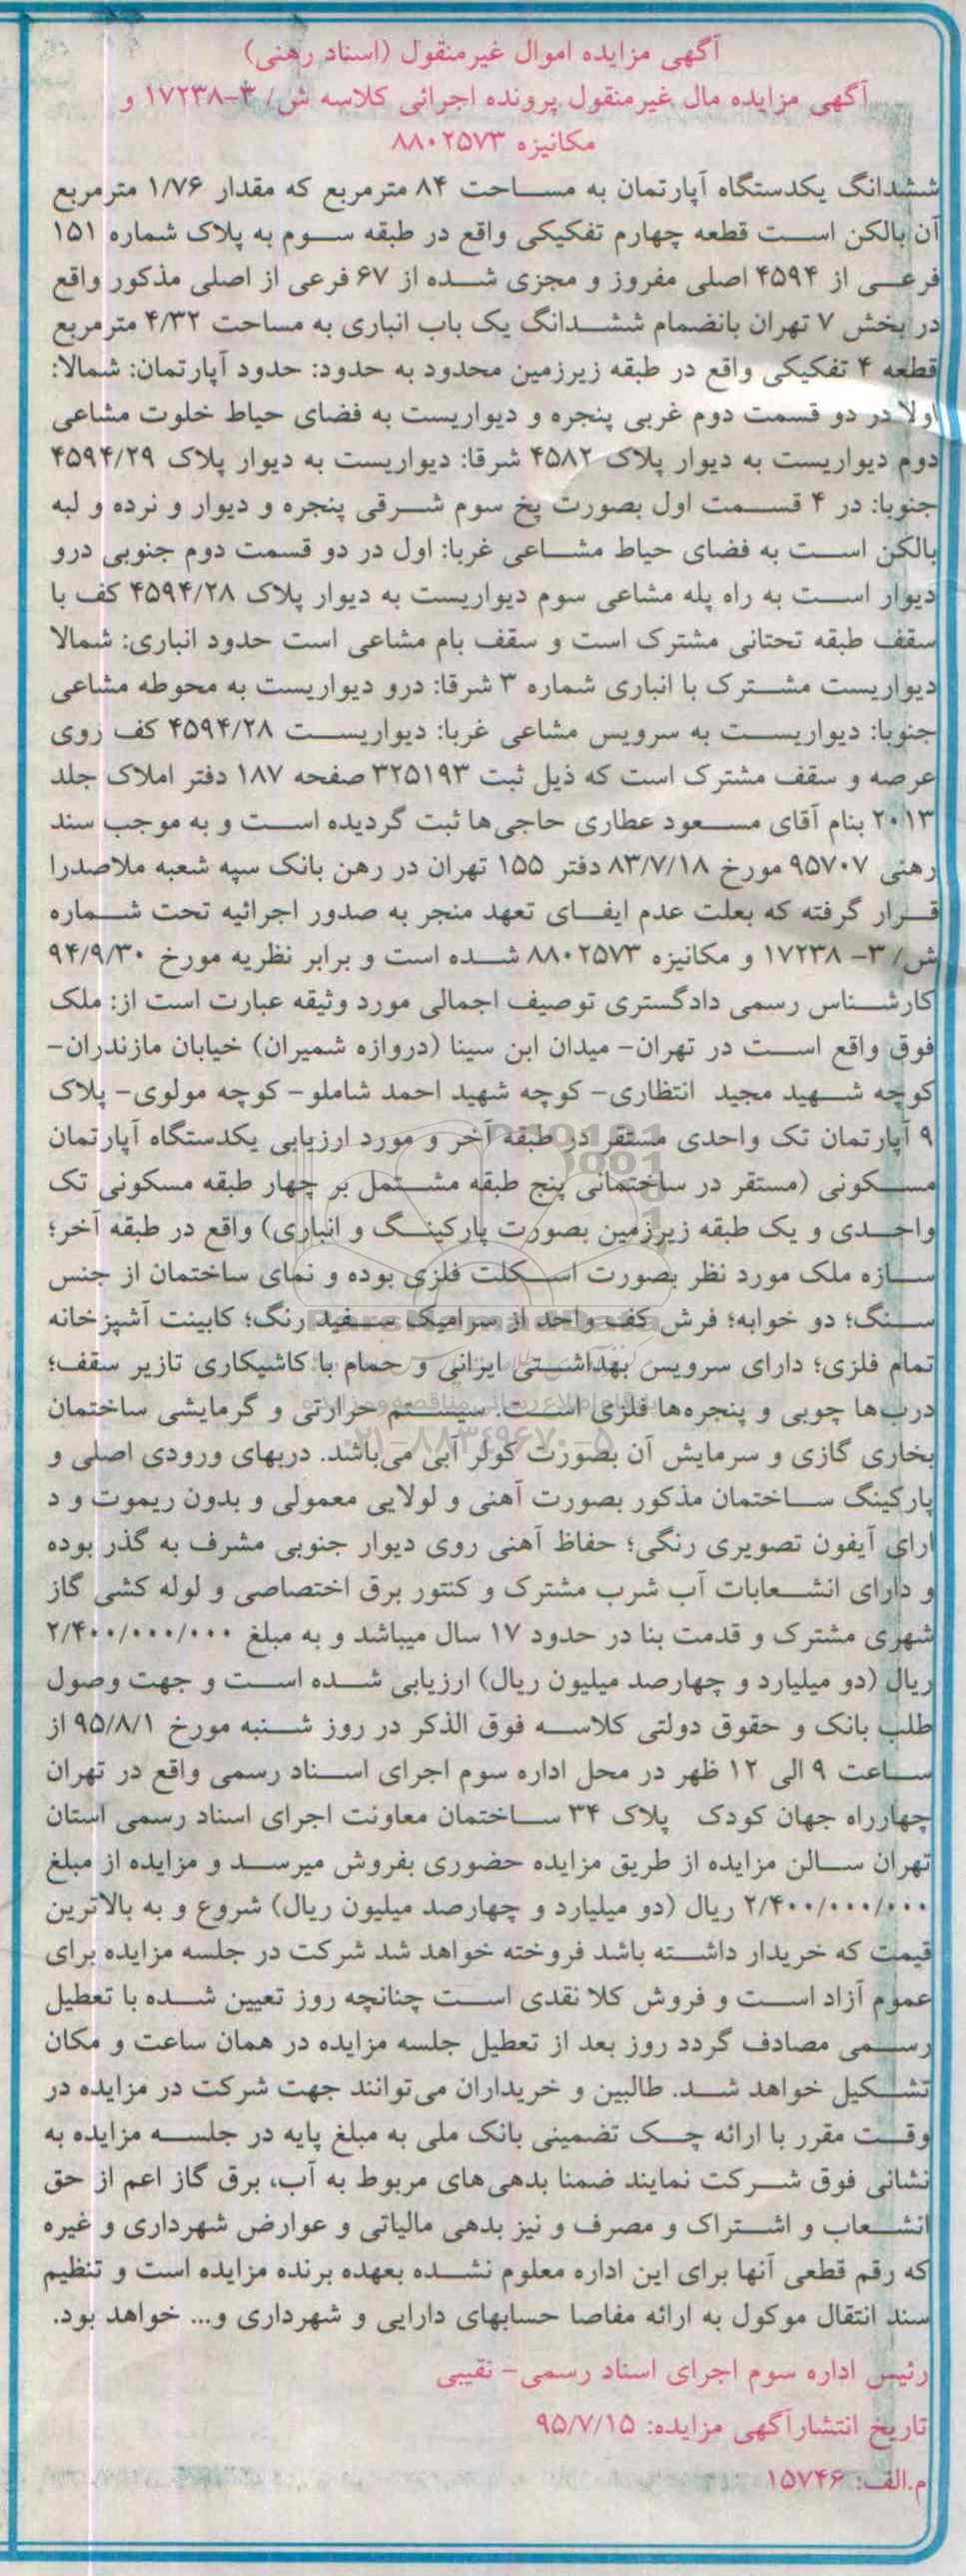 آگهی مزایده اموال غیرمنقول (اسناد رهنی)
آگهی مزایده مال غیرمنقول پرونده اجرائی کلاسه ش/ ۳-۱۷۲۳۸ و
مکانیزه ۸۸۰۲۵۷۳
ششدانگ یکدستگاه آپارتمان به مساحت ۸۴ مترمربع که مقدار ۱/۷۶ مترمربع
آن بالکن است قطعه چهارم تفکیکی واقع در طبقه سوم به پلاک شماره ۱۵۱
فرعی از ۴۵۹۴ اصلی مفروز و مجزی شده از ۶۷ فرعی از اصلی مذکور واقع
در بخش ۷ تهران بانضمام ششدانگ یک باب انباری به مساحت ۴/۳۲ مترمربع
قطعه ۴ تفکیکی واقع در طبقه زیرزمین محدود به حدود: حدود آپارتمان: شمالا:
اولا در دو قسمت دوم غربی پنجره و دیواریست به فضای حیاط خلوت مشاعی
دوم دیواریست به دیوار پلاک ۴۵۸۲ شرقا: دیواریست به دیوار پلاک ۴۵۹۴/۲۹
جنوبا: در ۴ قسمت اول بصورت پخ سوم شرقی پنجره و دیوار و نرده و لبه
بالکن است به فضای حیاط مشاعی غربا: اول در دو قسمت دوم جنوبی درو
دیوار است به راه پله مشاعی سوم دیواریست به دیوار پلاک ۴۵۹۴/۲۸ کف با
سقف طبقه تحتانی مشترک است و سقف بام مشاعی است حدود انباری: شمالا
دیواریست مشترک با انباری شماره ۳ شرقا: درو دیواریست به محوطه مشاعی
جنوبا: دیواریست به سرویس مشاعی غربا: دیواریست ۴۵۹۴/۲۸ کف روی
عرصه و سقف مشترک است که ذیل ثبت ۳۲۵۱۹۳ صفحه ۱۸۷ دفتر املاک جلد
۲۰۱۳ بنام آقای مسعود عطاری حاجی‌ها ثبت گردیده است و به موجب سند
رهنی ۹۵۷۰۷ مورخ ۸۳/۷/۱۸ دفتر ۱۵۵ تهران در رهن بانک سپه شعبه ملاصدرا
قرار گرفته که بعلت عدم ایفای تعهد منجر به صدور اجرائیه تحت شماره
ش/ ۳- ۱۷۲۳۸ و مکانیزه ۸۸۰۲۵۷۳ شده است و برابر نظریه مورخ ۹۴/۹/۳۰
کارشناس رسمی دادگستری توصیف اجمالی مورد وثیقه عبارت است از: ملک
فوق واقع است در تهران- میدان ابن سینا (دروازه شمیران) خیابان مازندران-
کوچه شهید مجید انتظاری- کوچه شهید احمد شاملو- کوچه مولوی- پلاک
۹ آپارتمان تک واحدی مستقر در طبقه آخر و مورد ارزیابی یکدستگاه آپارتمان
مسکونی (مستقر در ساختمانی پنج طبقه مشتمل بر چهار طبقه مسکونی تک
واحدی و یک طبقه زیرزمین بصورت پارکینگ و انباری) واقع در طبقه آخر؛
سازه ملک مورد نظر بصورت اسکلت فلزی بوده و نمای ساختمان از جنس
سنگ؛ دو خوابه؛ فرش کف واحد از سرامیک سفید رنگ؛ کابینت آشپزخانه
تمام فلزی؛ دارای سرویس بهداشتی ایرانی و حمام با کاشیکاری تازیر سقف؛
درب‌ها چوبی و پنجره‌ها فلزی است. سیستم حرارتی و گرمایشی ساختمان
بخاری گازی و سرمایش آن بصورت کولر آبی می‌باشد. دربهای ورودی اصلی و
پارکینگ ساختمان مذکور بصورت آهنی و لولایی معمولی و بدون ریموت و د
ارای آیفون تصویری رنگی؛ حفاظ آهنی روی دیوار جنوبی مشرف به گذر بوده
و دارای انشعابات آب شرب مشترک و کنتور برق اختصاصی و لوله کشی گاز
شهری مشترک و قدمت بنا در حدود ۱۷ سال میباشد و به مبلغ ۲/۴۰۰/۰۰۰/۰۰۰
ریال (دو میلیارد و چهارصد میلیون ریال) ارزیابی شده است و جهت وصول
طلب بانک و حقوق دولتی کلاسه فوق الذکر در روز شنبه مورخ ۹۵/۸/۱ از
ساعت ۹ الی ۱۲ ظهر در محل اداره سوم اجرای اسناد رسمی واقع در تهران
چهارراه جهان کودک پلاک ۳۴ ساختمان معاونت اجرای اسناد رسمی استان
تهران سالن مزایده از طریق مزایده حضوری بفروش میرسد و مزایده از مبلغ
۲/۴۰۰/۰۰۰/۰۰۰ ریال (دو میلیارد و چهارصد میلیون ریال) شروع و به بالاترین
قیمت که خریدار داشته باشد فروخته خواهد شد شرکت در جلسه مزایده برای
عموم آزاد است و فروش کلا نقدی است چنانچه روز تعیین شده با تعطیل
رسمی مصادف گردد روز بعد از تعطیل جلسه مزایده در همان ساعت و مکان
تشکیل خواهد شد. طالبین و خریداران می‌توانند جهت شرکت در مزایده در
وقت مقرر با ارائه چک تضمینی بانک ملی به مبلغ پایه در جلسه مزایده به
نشانی فوق شرکت نمایند ضمنا بدهی‌های مربوط به آب، برق گاز اعم از حق
انشعاب و اشتراک و مصرف و نیز بدهی مالیاتی و عوارض شهرداری و غیره
که رقم قطعی آنها برای این اداره معلوم نشده بعهده برنده مزایده است و تنظیم
سند انتقال موکول به ارائه مفاصا حسابهای دارایی و شهرداری و... خواهد بود.
رئیس اداره سوم اجرای اسناد رسمی- نقیبی
تاریخ انتشارآگهی مزایده: ۹۵/۷/۱۵
م.الف: ۱۵۷۴۶